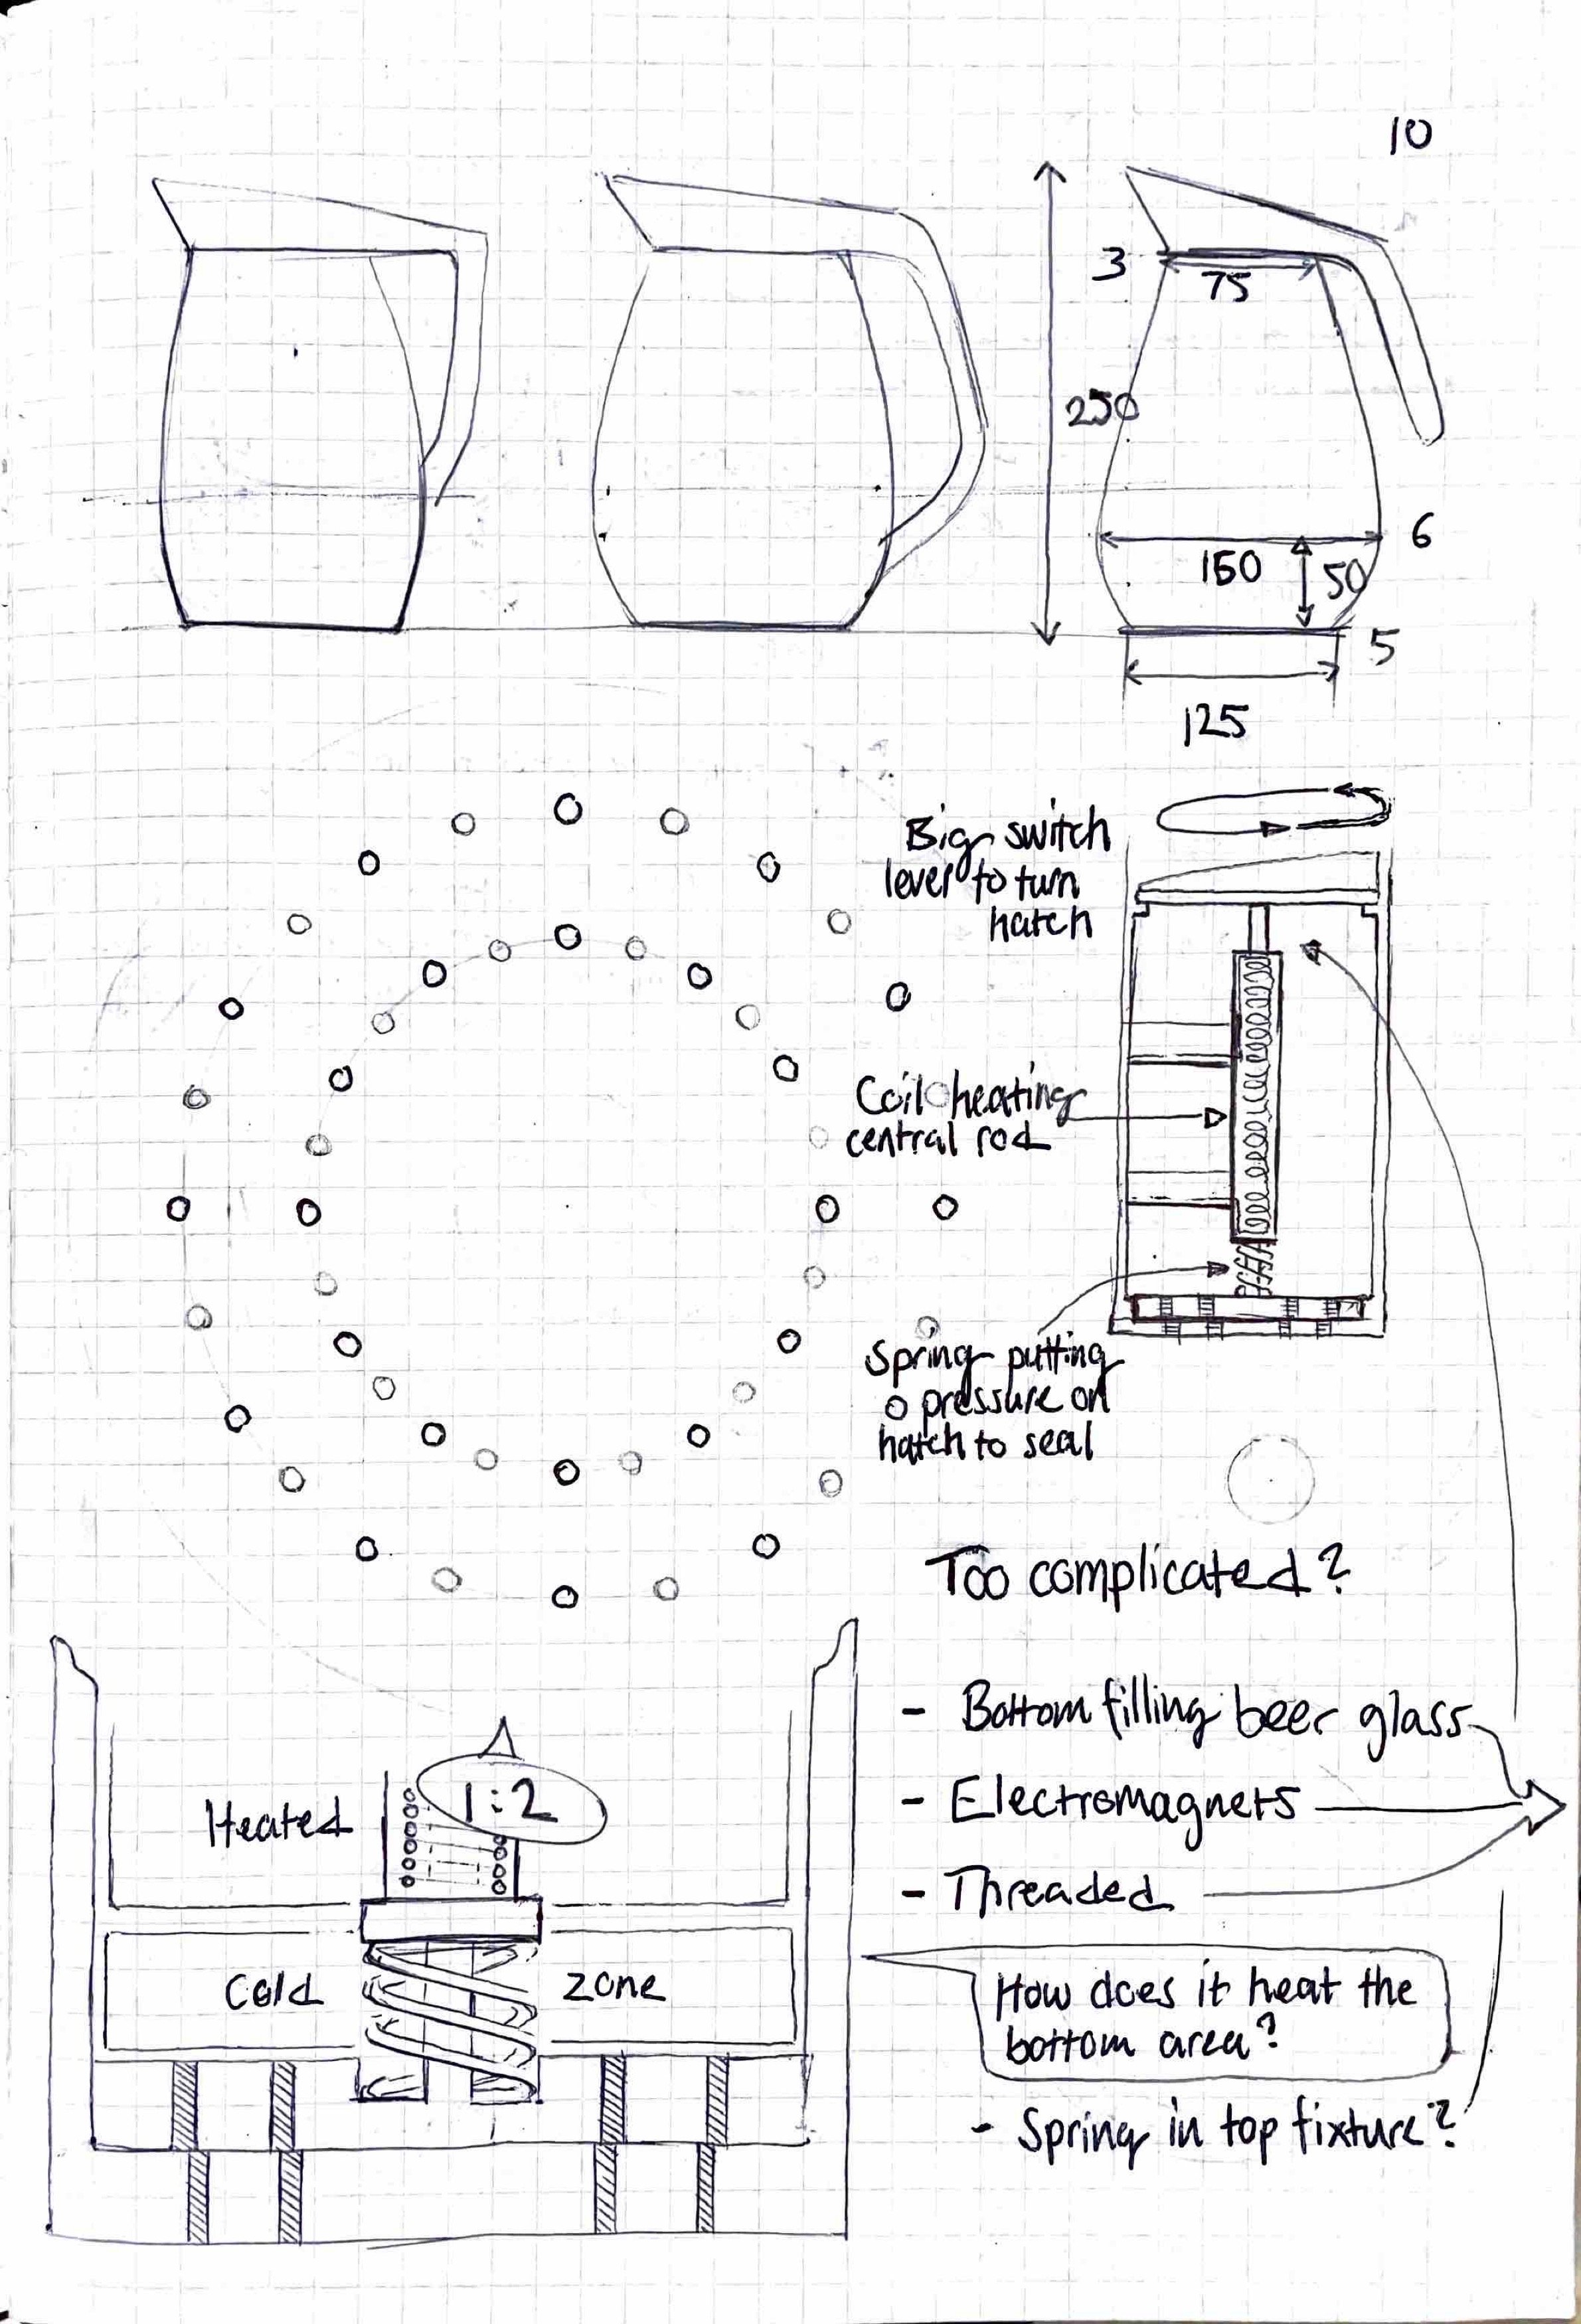 10
3
75
250
6
150
50
5
125
Big switch
lever to turn
hatch
Coil heating
central rod
Spring putting
pressure on
hatch to seal
Too complicated?
- Bottom filling beer glass
- Electromagnets
- Threaded
Heated
1:2
Cold zone
How does it heat the
bottom area?
- Spring in top fixture?